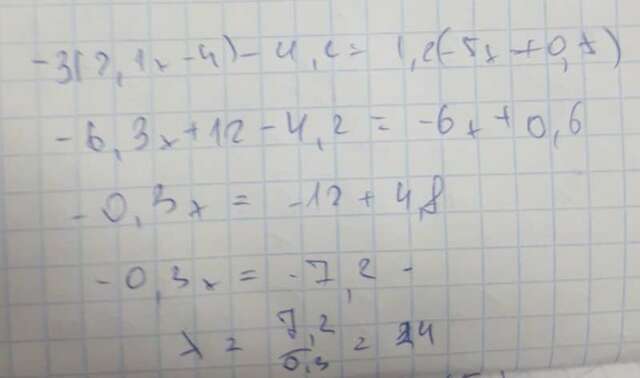 -3(2,1x-4)-4,2=1,2(-5x+0,5)
-6,3x+12-4,2=-6x+0,6
-0,3x=-12+4,8
-0,3x=-7,2
x=7,2/0,3=24